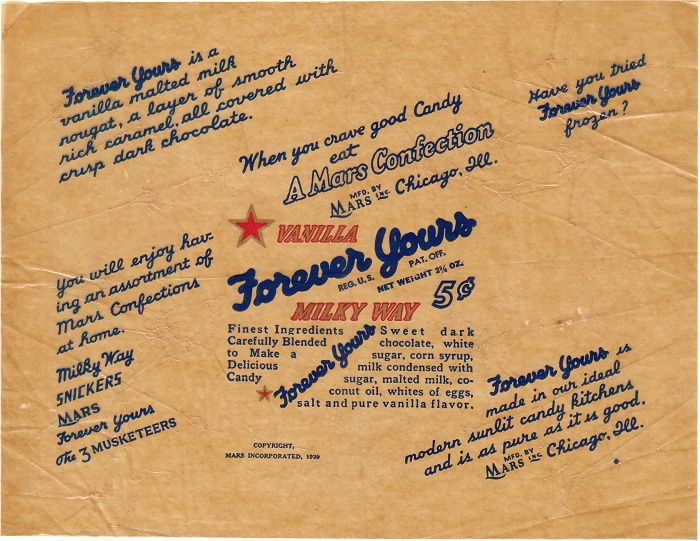 Forever Yours is a
vanilla malted milk
nougat, a layer of smooth
rich caramel, all covered with
crisp dark chocolate.
Have you tried
Forever Yours
frozen?
When you crave good Candy
eat
A Mars Confection
MFD. BY
MARS INC. Chicago, Ill.
VANILLA
Forever Yours
REG. U.S. PAT. OFF.
NET WEIGHT 2⅛ OZ.
MILKY WAY 5¢
You will enjoy hav-
ing an assortment of
Mars Confections
at home.
Milky Way
SNICKERS
MARS
Forever Yours
The 3 MUSKETEERS
Finest Ingredients
Carefully Blended
to Make a
Delicious
Candy
Forever Yours
Sweet dark
chocolate, white
sugar, corn syrup,
milk condensed with
sugar, malted milk, co-
conut oil, whites of eggs,
salt and pure vanilla flavor.
COPYRIGHT,
MARS INCORPORATED, 1939
Forever Yours is
made in our ideal
modern sunlit candy kitchens
and is as pure as it is good.
MFD. BY
MARS INC. Chicago, Ill.